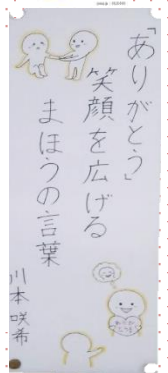 「ありがとう」
笑顔を広げる
まほうの言葉
川本 咲希